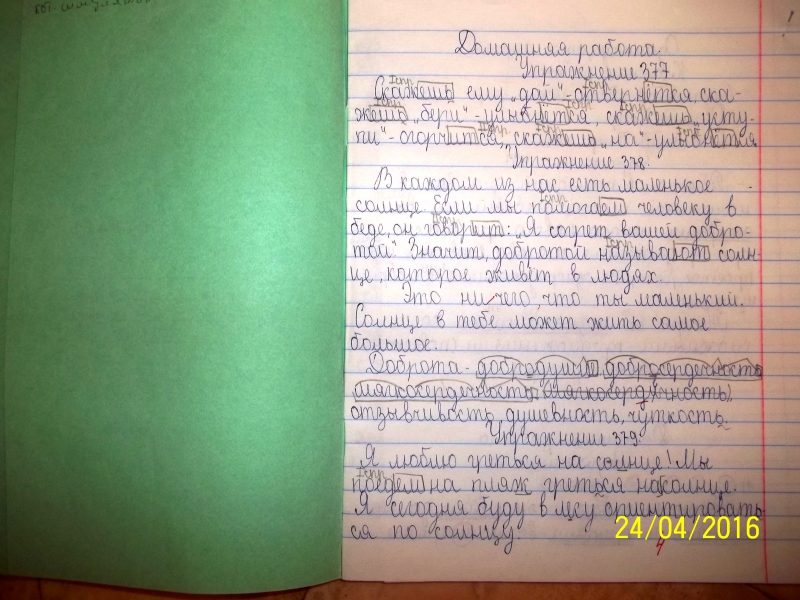 Домашняя работа.
Упражнение 377.
Скажешь ему „дай" - отвернётся, ска-
жешь „бери" - улыбнётся, скажешь „усту-
пи" - огорчится, скажешь „на" - улыбнётся.
Упражнение 378.
В каждом из нас есть маленькое
солнце. Если мы помогаем человеку в
беде, он говорит: „Я согрет вашей добро-
той". Значит, добротой называют солн-
це, которое живёт в людях.
Это ни чего, что ты маленький.
Солнце в тебе может жить самое
большое.
Доброта - добродушие, добросердечность,
мягкосердечность (мягкосердечность),
отзывчивость, душевность, чуткость.
Упражнение 379.
Я люблю греться на солнце! Мы
поедем на пляж греться на солнце.
Я сегодня буду в лесу ориентировать-
ся по солнцу.
24/04/2016
4